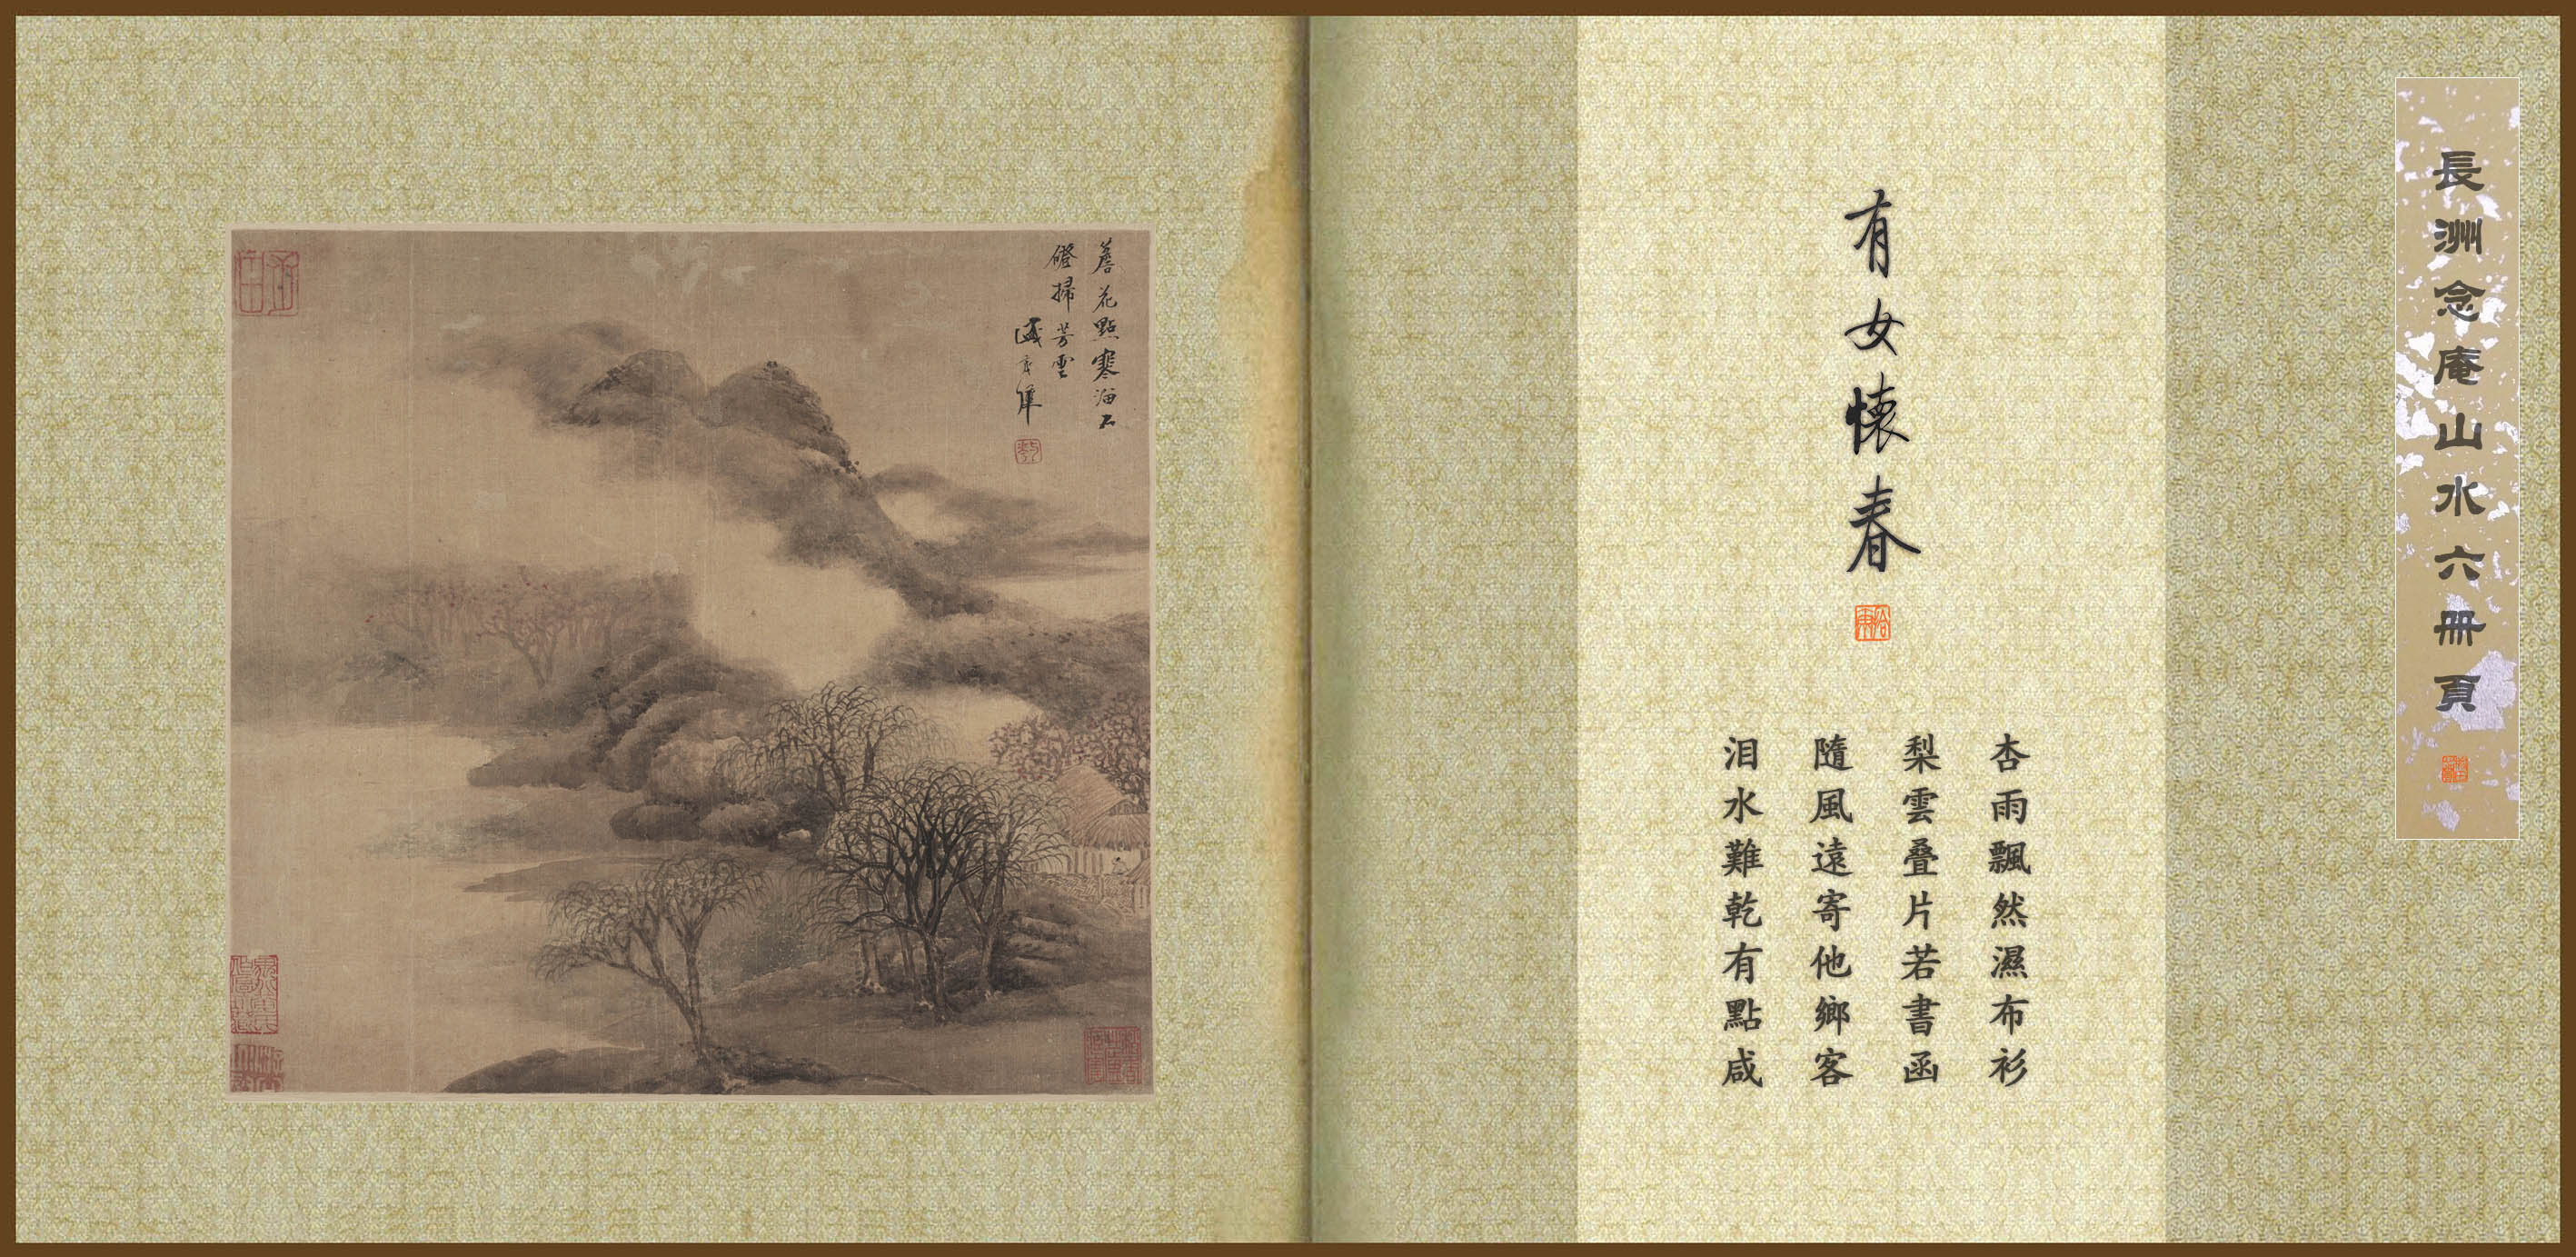 長洲念庵山水六冊頁
有女懷春
杏雨飄然濕布衫
梨雲叠片若書函
隨風遠寄他鄉客
泪水難乾有點咸
花點寒溜石
磴掃芳雲
盛茂